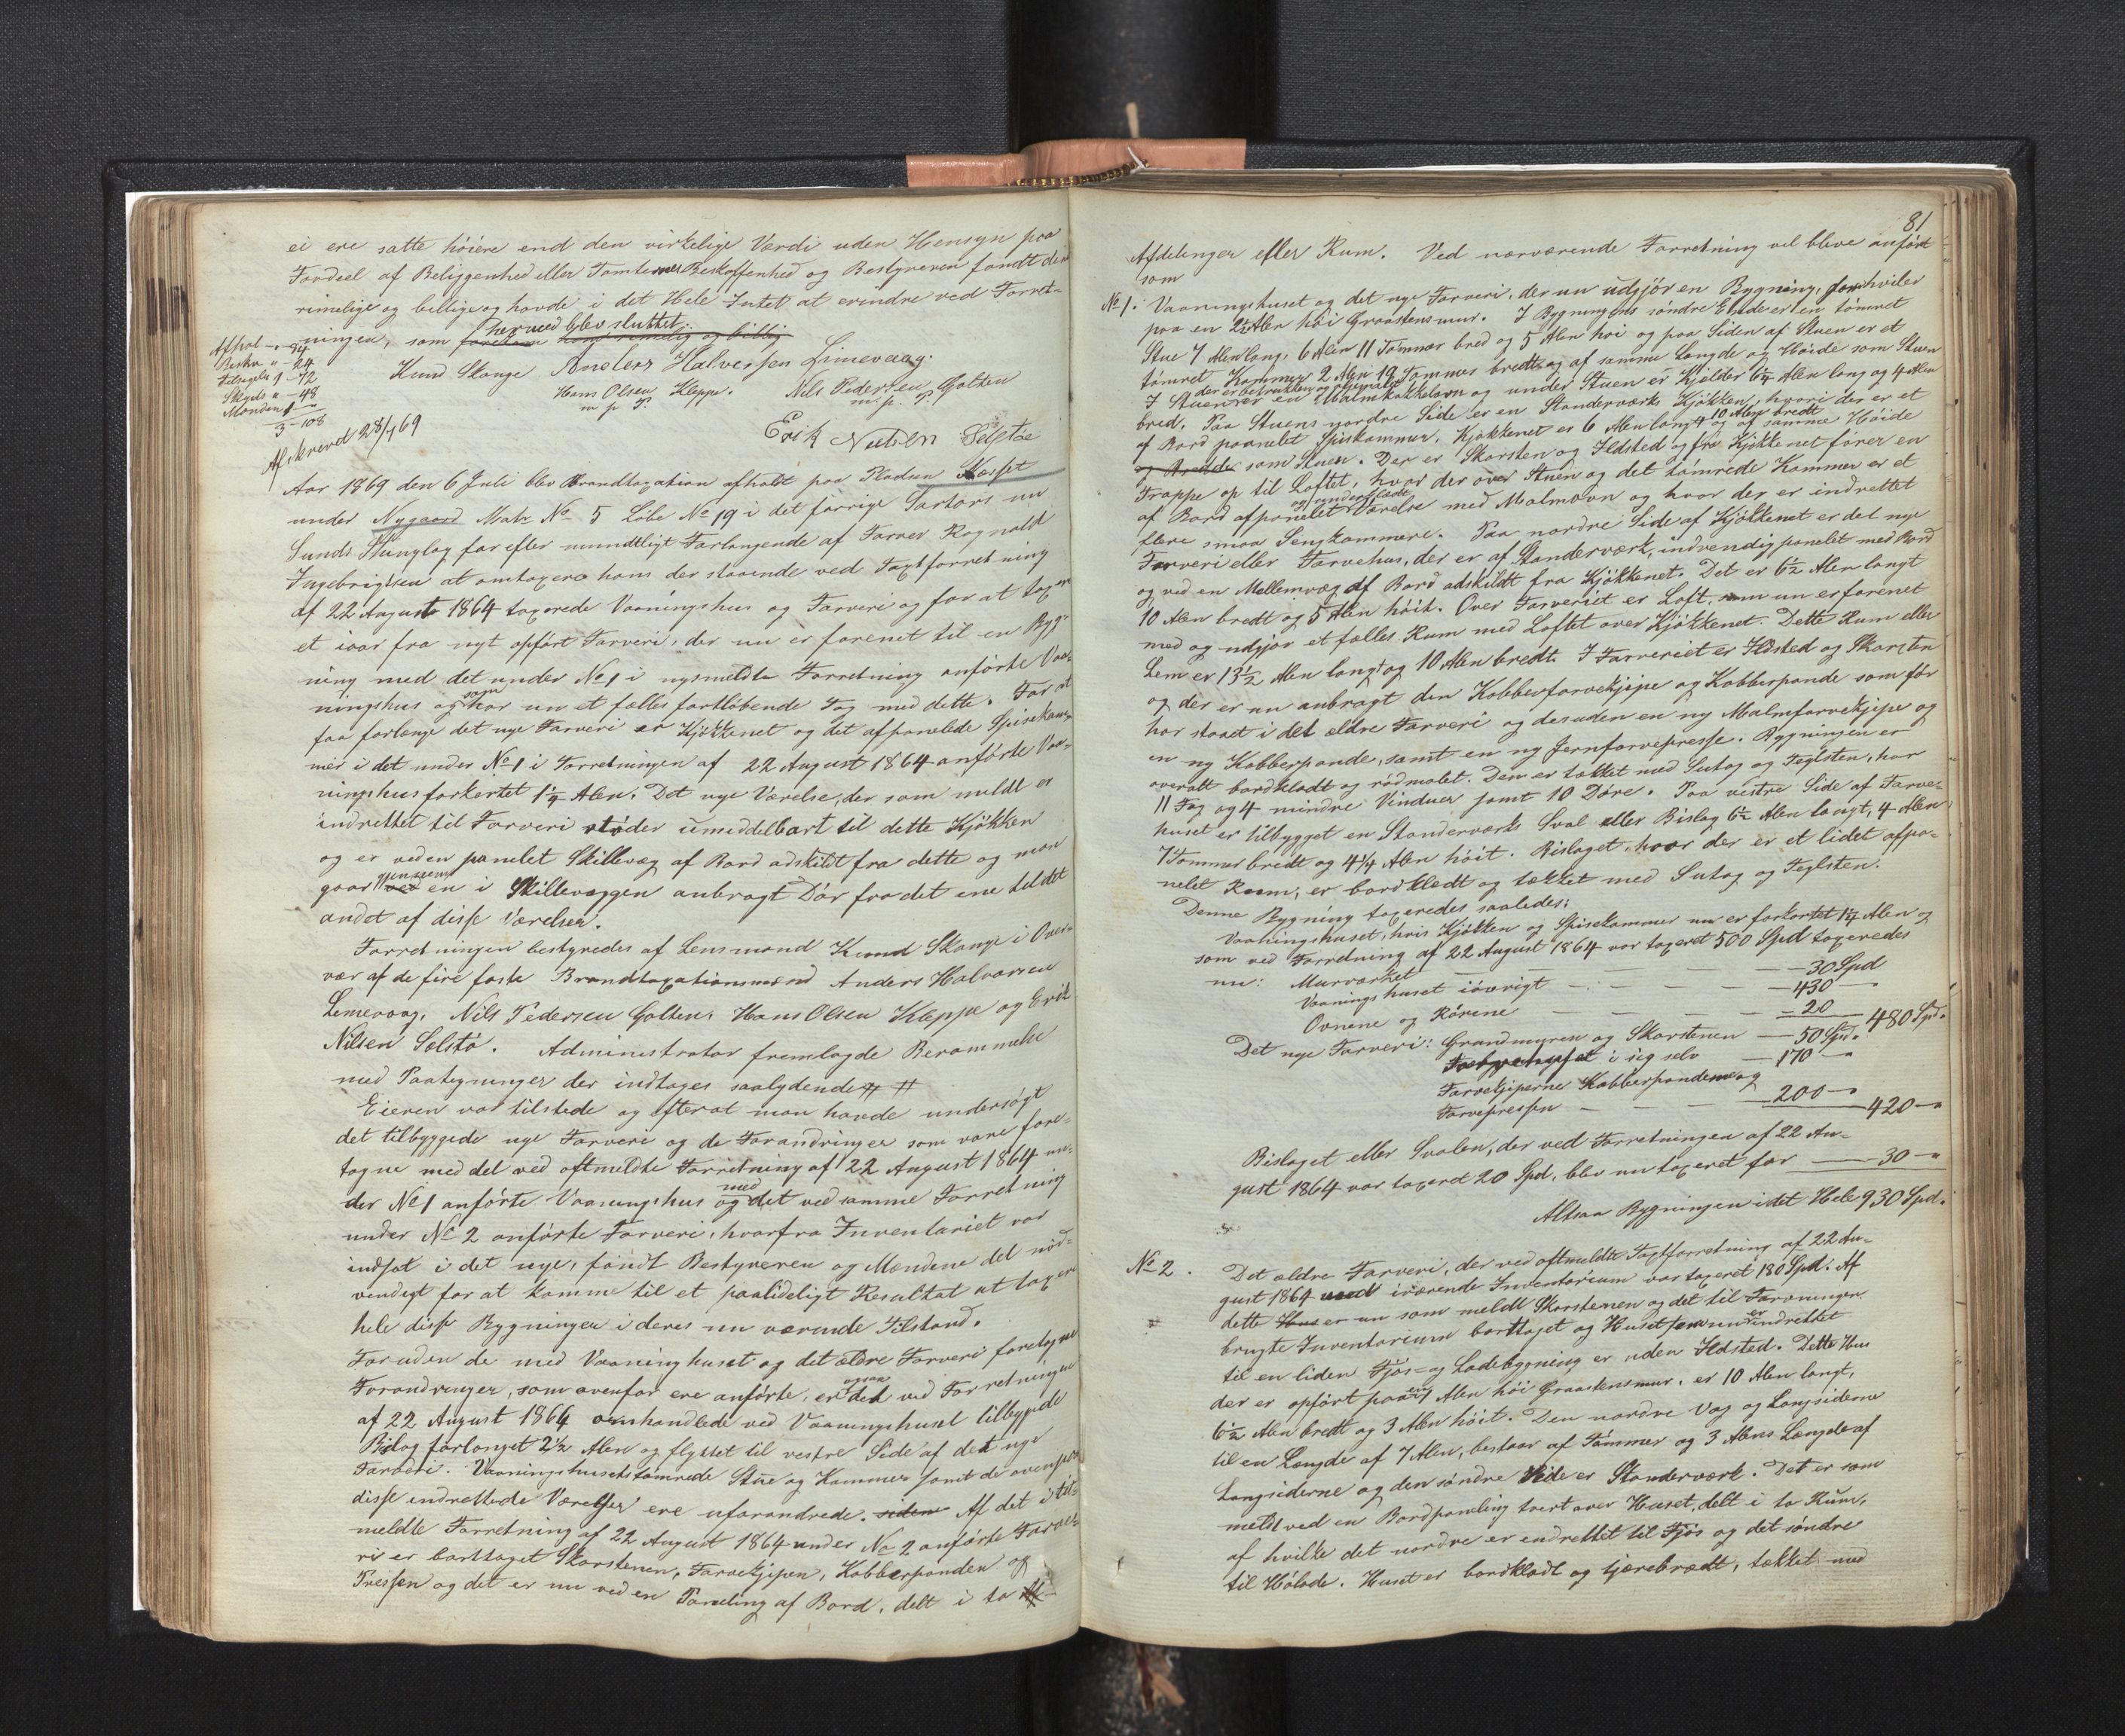 ei ere satte höiere end den virkelige Værdi uden Hensyn paa
Fordeel af Beliggenhed eller Tomternes Beskaffenhed og Bestyreren fandt den
rimelige og billige og havde i det Hele Intet at erindre ved Forret-
ningen, som hermed blev sluttet.
Afhol
Beskr " - 24
Forseglen 1 - 72
Skyds " - 48
Mændene 1 -
3 - 108
Knud Skange Anders Halversen Limevaag.
Hans Olsen Kleppe. Nils Pedersen Golten
m p P. m. p. P.
Erik Nielsen Selstøe
Afskrevet 28/7 69
Aar 1869 den 6 Juli blev Brandtaxation afholdt paa Pladsen
under Nygaard Matr No 5 Löbe No 19 i det forrige Sartors nu
Sunds Thinglag for efter mundtligt Forlangende af Farver Rognald
Ingebrigtsen at omtaxere hans der staaende ved Taxtforretning
af 22 August 1864 taxerede Vaaningshus og Farveri og for at taxere
et iaar fra nyt opfört Farveri, der nu er forenet til en Byg-
ning med det under No 1 i nysmeldte Forretning anförte Vaa-
ningshus og som har nu et fælles fortlöbende Tag med dette. For at
faa forlænge det nye Farveri er Kjökkenet og det afpanelede Spisekam-
mer i det under No 1 i Forretningen af 22 August 1864 anförte Vaa-
ningshus forkortet 1¼ Alen. Det nye Værelse, der som meldt er
indrettet til Farveri stöder umiddelbart til dette Kjökken
og er ved en panelet Skillevæg af Bord adskildt fra dette og man
gaar gjennem en i Skillevæggen anbragt Dör fra det ene til det
andet af disse Værelser.
Forretningen bestyredes af Lensmand Knud Skange i Over-
vær af de fire faste Brandtaxationsmænd Anders Halvorsen
Lemevaag, Nils Pedersen Golten, Hans Olsen Kleppe og Erik
Nilsen Selstö. Administrator fremlagde Berammelse
med Paategninger der indtages saalydende
Eieren var tilstede og efterat man havde undersögt
det tilbyggede nye Farveri og de Forandringer som vare fore-
tagne med det ved oftmeldte Forretning af 22 August 1864 un-
der No 1 anförte Vaaningshus og med det ved samme Forretning
under No 2 anförte Farveri, hvorfra Inventariet var
indsat i det nye, fandt Bestyreren og Mændene det nöd-
vendigt for at komme til et paalideligt Resultat at taxere
hele disse Bygninger i deres nu værende Tilstand.
Foruden de med Vaaninghuset og det ældre Farveri foretagne
Forandringer, som ovenfor ere anförte, er ogsaa det ved Forretningen
af 22 August 1864 omhandlede ved Vaaningshuset tilbyggede
Bislag forlænget 2½ Alen og flyttet til vestre Side af det nye
Farveri. Vaaningshusets tömrede Stue og Kammer samt de ovenpaa
disse indrettede Værelser ere uforandrede. siden Af det i til-
meldte Forretning af 22 August 1864 under No 2 anförte Farve-
ri er borttaget Skorstenen, Farvekjipen, Kobberpanden og
Pressen og det er nu ved en Paneling af Bord, delt i to
81
Afdelinger eller Rum. Ved nærværende Forretning vil blive anfört
som
No 1: Vaaningshuset og det nye Farveri, der nu udgjör en Bygning, som hviler
paa en 2½ Alen höi Graastensmur. I Bygningens söndre Ende er en tömret
Stue 7 Alen lang, 6 Alen 11 Tommer bred og 5 Alen höi og paa Siden af Stuen er et
tömret Kammer 2 Alen 19 Tommer bredt og af samme Længde og Höide som Stuen
I Stuen der er betrukken og er en Malmkakkelovn og under Stuen er Kjelder 6¼ Alen lang og 4 Alen
bred. Paa Stuens nordre Side er en Standerværks Kjökken, hvori der er et
af Bord paanelet Spiskammer. Kjökkenet er 6 Alen langt 10 Alen bredt og af samme Höide
som Stuen. Der er Skorsten og Ildsted og fra Kjökkenet förer en
Trappe op til Loftet, hvor der over Stuen og det tömrede Kammer er et
af Bord afpanelet Værelse med Malmovn og hvor der er indrettet
flere smaa Sengkammere. Paa nordre Side af Kjökkenet er det nye
Farveri eller Farvehus, der er af Standerværk, indvendig panelet med Bord
og ved en Mellemvæg af Bord adskildt fra Kjökkenet. Det er 6½ Alen langt
10 Alen bredt og 5 Alen höit. Over Farveriet er Loft, som nu er forenet
med og udgjör et fælles Rum med Loftet over Kjökkenet. Dette Rum eller
Lem er 13½ Alen langt og 10 Alen bredt. I Farveriet er Ildsted og Skorsten
og der er nu anbragt den Kobberfarvekjipe og Kobberpande som för
har staaet i det ældre Farveri og desuden en ny Malmfarvekjipe og
en ny Kobberpande, samt en ny Jernfarvepresse. Bygningen er
overalt bordklædt og rödmalet. Den er tækket med Sutag og Teglsten, har
11 Fag og 4 mindre Vinduer samt 10 Döre. Paa vestre Side af Farve-
huset er tilbygget en Standerværks Sval eller Bislag 6½ Alen langt, 4 Alen
7 Tommer bredt og 4¼ Alen höit. Bislaget, hvor der er et lidet afpa-
nelet Rum, er bordklædt og tækket med Sutag og Teglsten.
Denne Bygning taxeredes saaledes:
Vaaningshuset, hvis Kjökken og Spisekammer nu er forkortet 1¼ Alen og
som ved Forretning af 22 August 1864 var taxeret 500 Spd taxeredes
nu: Murværket — 30 Spd
Vaaningshuset iövrigt — 430 —
Ovnene og Rörene — 20 — 480 Spd.
Det nye Farveri: Grundmuren og Skorstenen — 50 Spd.
i sig selv — 170 — "
Farvekjiperne Kobberpanderne og
Farvepressen — 200 — " 420 — "
Bislaget eller Svalen, der ved Forretningen af 22 Au-
gust 1864 var taxeret 20 Spd. blev nu taxeret for — 30 — "
Altsaa Bygningen i det Hele 930 Spd.
No 2. Det ældre Farveri, der ved oftmeldte Taxtforretning af 22 Au-
gust 1864 med iværende Inventarium var taxeret 180 Spd. Af
dette Hus er nu som meldt Skorstenen og det til Farvningen
brugte Inventarium borttaget og Huset som nu er indrettet
til en liden Fjös- og Ladebygning er uden Ildsted. Dette Hus
der er opfört paa en 1 Alen höi Graastensmur, er 10 Alen langt,
6½ Alen bredt og 3 Alen höit. Den nordre Væg og Langsiderne
til en Længde af 7 Alen, bestaar af Tömmer og 3 Alens Længde af
Langsiderne og den söndre Side er Standerværk. Det er som
meldt ved en Bordpaneling tvert over Huset, delt i to Rum,
af hvilke det nordre er indrettet til Fjös og det söndre
til Hölade. Huset er bordklædt og tjærebrædt, tækket med